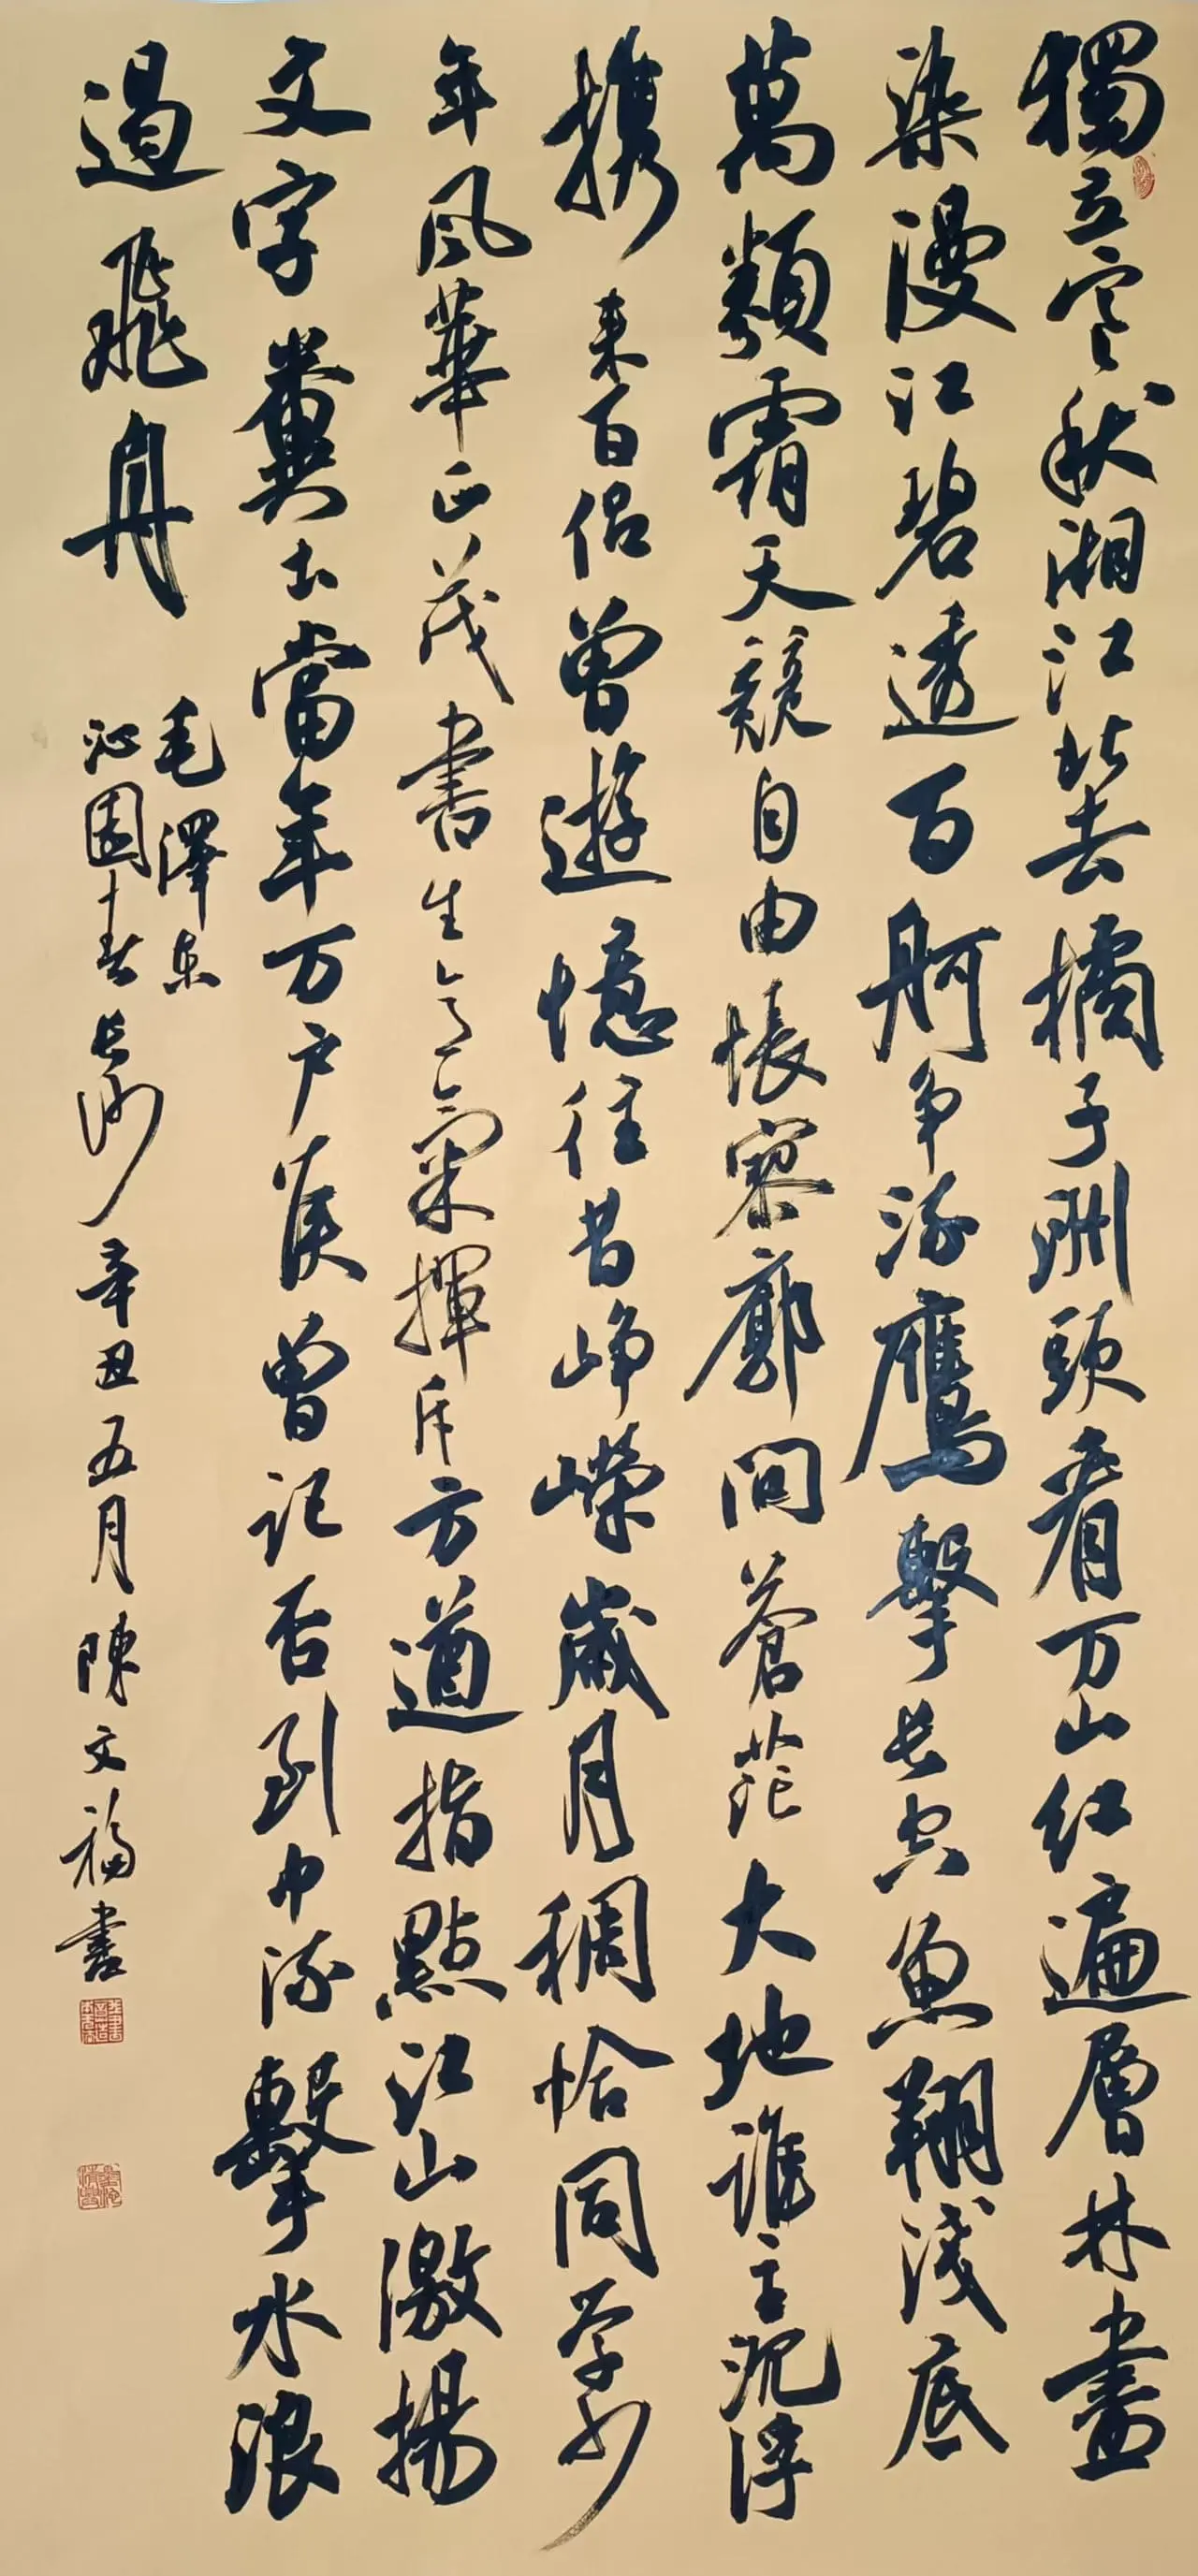 獨立寒秋湘江北去橘子洲頭看万山红遍層林盡
染漫江碧透百舸争流鷹擊長空魚翔淺底
萬類霜天競自由悵寥廓問蒼茫大地誰主沉浮
携来百侣曾遊憶往昔崢嶸歲月稠恰同学少
年風華正茂書生意氣揮斥方遒指點江山激揚
文字糞土當年万户侯曾記否到中流擊水浪
遏飛舟
毛澤东
沁園春長沙辛丑五月陳文福書